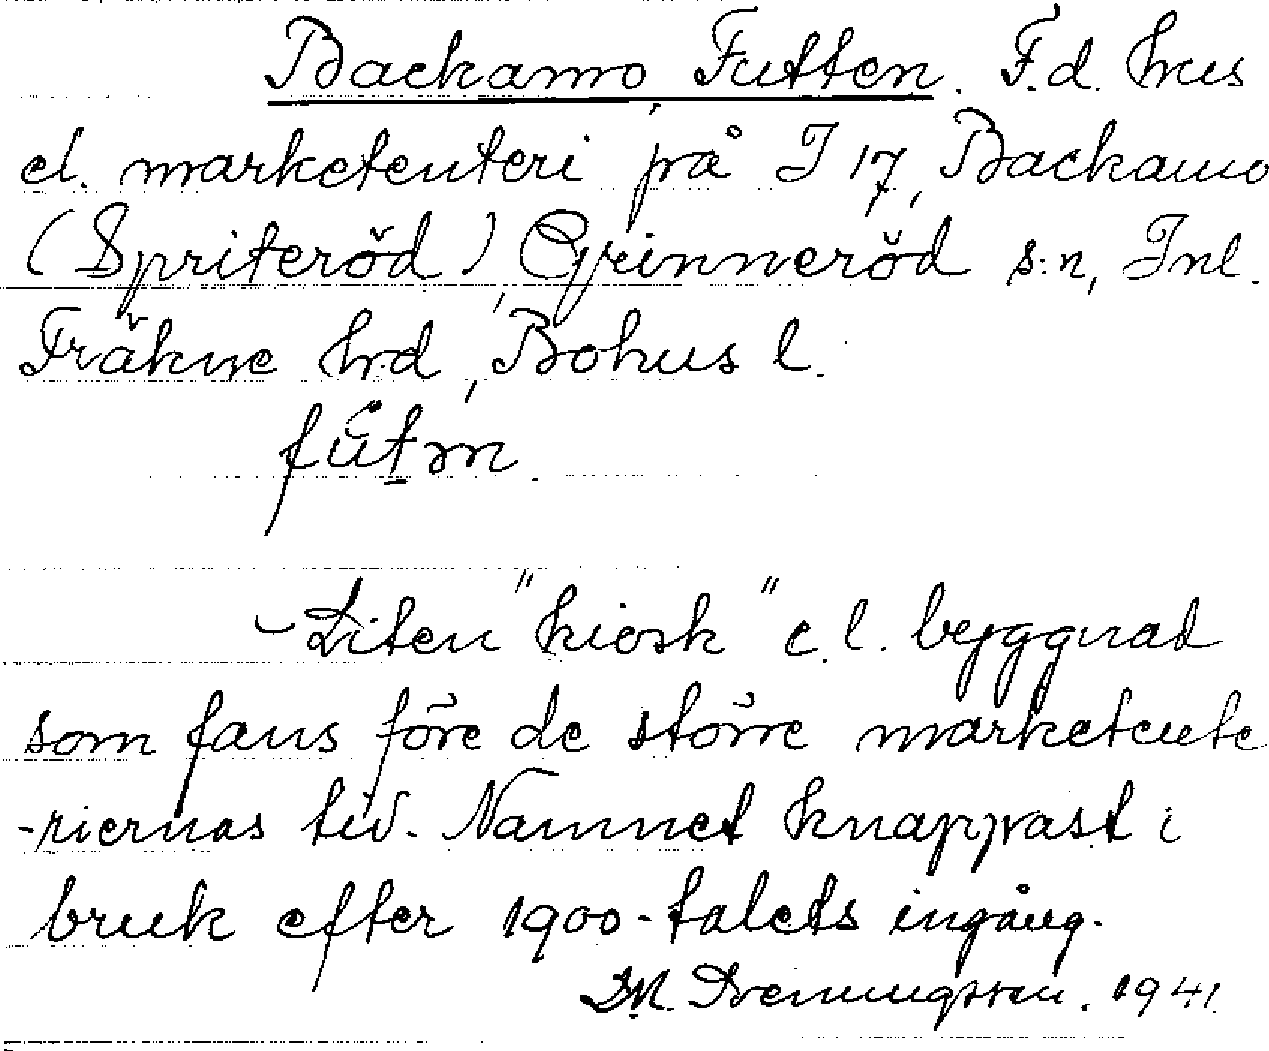 Backamo, Futten. F.d. hus
el. marketenteri på I 17, Backamo
(Spriteröd), Grinneröd s:n, Inl.
Fräkne hrd, Bohus l.
fútm.
- Liten "kiosk" e.l. byggnad
som fans före de större marketente
-riernas tid. Namnet knappast i
bruk efter 1900-talets ingång.
1941